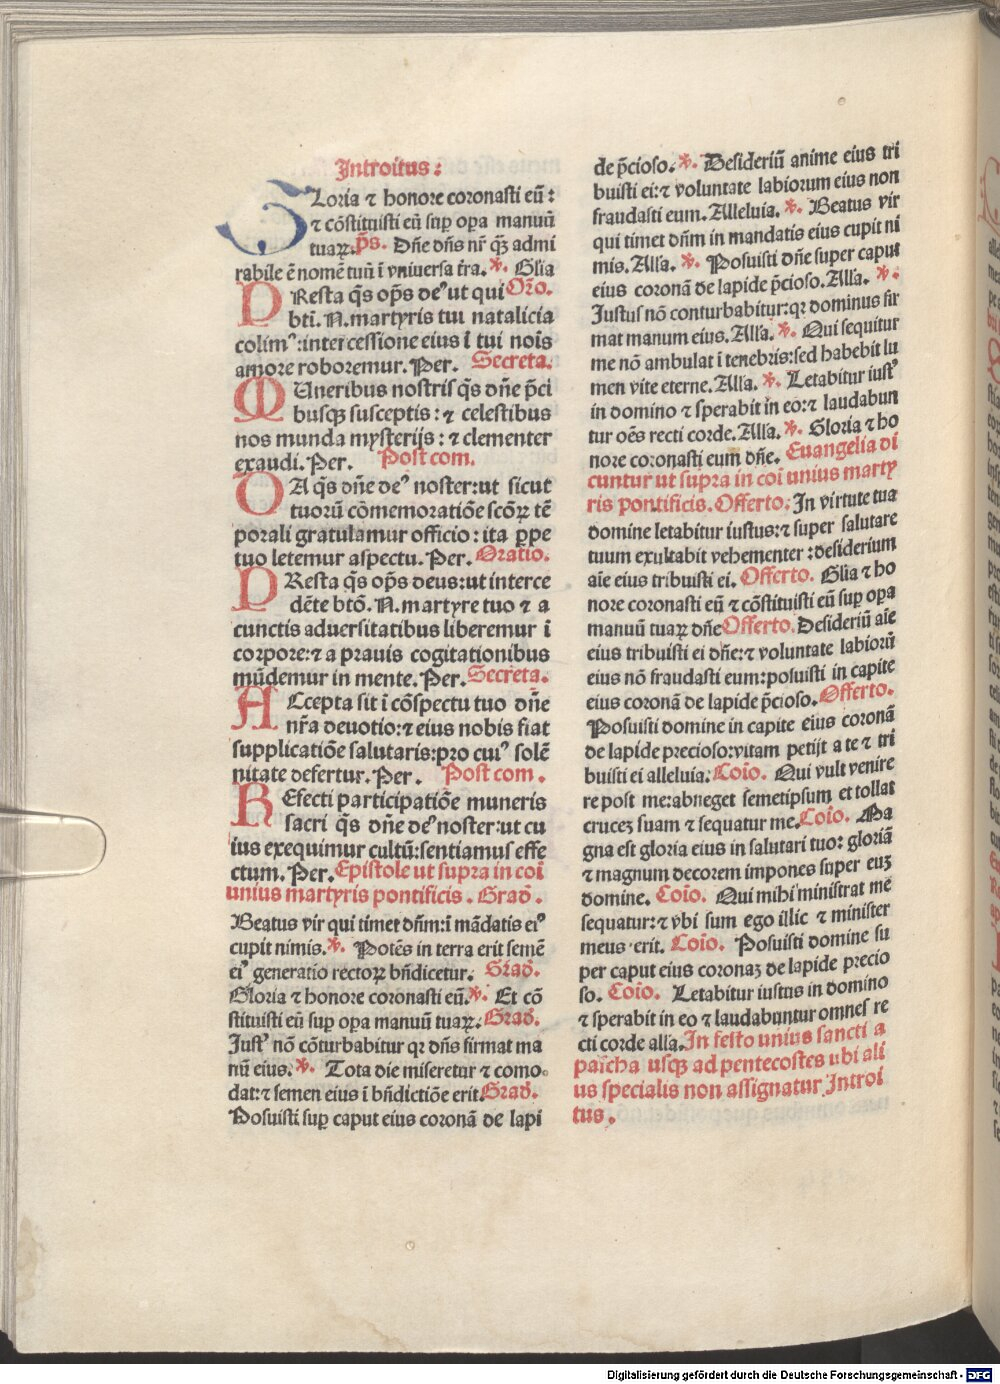 Introitus:
Gloria ⁊ honore coronasti eū:
⁊ cōstituisti eū suꝑ oꝑa manuū
tuaꝝ. p̄s. Dn̄e dn̄s nr̄ qꝫ admi
rabile ē nomē tuū ī vniuersa tr̄a. ℣. Glia
PResta q̄s op̄s deꝰ ut qui Or̄o.
bti. N. martyris tui natalicia
colimꝰ: intercessione eius ī tui nois
amore roboremur. Per. Secreta.
MUneribus nostris q̄s dn̄e p̄ci
busqꝫ susceptis: ⁊ celestibus
nos munda mysterijs: ⁊ clementer
exaudi. Per. Post com.
DA q̄s dn̄e deꝰ noster: ut sicut
tuorū cōmemoratiōe scōꝝ tē
porali gratulamur officio: ita ꝑpe
tuo letemur aspectu. Per. Oratio.
PResta q̄s op̄s deus: ut interce
dēte btō. N. martyre tuo ⁊ a
cunctis aduersitatibus liberemur ī
corpore: ⁊ a prauis cogitationibus
mūdemur in mente. Per. Secreta.
ACcepta sit ī cōspectu tuo dn̄e
nr̄a deuotio: ⁊ eius nobis fiat
supplicatiōe salutaris: pro cuiꝰ solē
nitate defertur. Per. Post com.
REfecti participatiōe muneris
sacri q̄s dn̄e deꝰ noster: ut cu
ius exequimur cultū: sentiamus effe
ctum. Per. Epistole ut supra in coī
unius martyris pontificis. Grad̄.
Beatus vir qui timet dn̄m: ī mādatis eiꝰ
cupit nimis. ℣. Potēs in terra erit semē
eiꝰ generatio rectoꝝ bn̄dicetur. Grad̄.
Gloria ⁊ honore coronasti eū. ℣. Et cō
stituisti eū suꝑ oꝑa manuū tuaꝝ. Grad̄.
Justꝰ nō cōturbabitur qꝛ dn̄s firmat ma
nū eius. ℣. Tota die miseretur ⁊ como
dat: ⁊ semen eius ī bn̄dictiōe erit. Grad̄.
Posuisti suꝑ caput eius coronā de lapi
de p̄cioso. ℣. Desideriū anime eius tri
buisti ei: ⁊ voluntate labiorum eius non
fraudasti eum. Alleluia. ℣. Beatus vir
qui timet dn̄m in mandatis eius cupit ni
mis. Alla. ℣. Posuisti dn̄e super caput
eius coronā de lapide p̄cioso. Alla. ℣.
Justus nō conturbabitur: qꝛ dominus fir
mat manum eius. Alla. ℣. Qui sequitur
me nō ambulat ī tenebris: sed habebit lu
men vite eterne. Alla. ℣. Letabitur iustꝰ
in domino ⁊ sperabit in eo: ⁊ laudabun
tur oēs recti corde. Alla. ℣. Gloria ⁊ ho
nore coronasti eum dn̄e. Euangelia di
cuntur ut supra in coī unius marty
ris pontificis. Offerto: In virtute tua
domine letabitur iustus: ⁊ super salutare
tuum exultabit vehementer: desiderium
aīe eius tribuisti ei. Offerto. Glia ⁊ ho
nore coronasti eū ⁊ cōstituisti eū suꝑ oꝑa
manuū tuaꝝ dn̄e Offerto. Desideriū aīe
eius tribuisti ei dn̄e: ⁊ voluntate labiorū
eius nō fraudasti eum: posuisti in capite
eius coronā de lapide p̄cioso. Offerto.
Posuisti domine in capite eius coronā
de lapide precioso: vitam petijt a te ⁊ tri
buisti ei alleluia: Coīo. Qui vult venire
re post me: abneget semetipsum et tollat
crucez suam ⁊ sequatur me. Coīo. Ma
gna est gloria eius in salutari tuo: gloriā
⁊ magnum decorem impones super euz
domine. Coīo. Qui mihi ministrat me
sequatur: ⁊ vbi sum ego illic ⁊ minister
meus erit. Coīo. Posuisti domine su
per caput eius coronaz de lapide precio
so. Coīo. Letabitur iustus in domino
⁊ sperabit in eo ⁊ laudabuntur omnes re
cti corde alla. In festo unius sancti a
pascha usqꝫ ad pentecostes ubi ali
us specialis non assignatur Introi
tus.
Digitalisierung gefördert durch die Deutsche Forschungsgemeinschaft - DFG